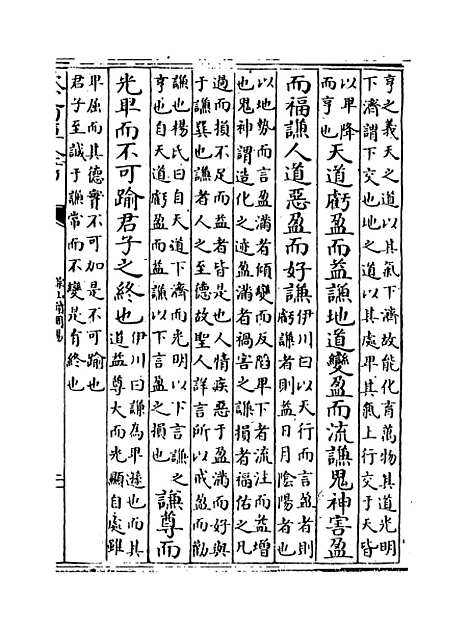 亨之義天之道以其氣下濟故能化育萬物其道光明
下濟謂下交也地之道以其處卑其氣上行交于天皆
以卑降
而亨也
天道虧盈而益謙地道變盈而流謙鬼神害盈
而福謙人道惡盈而好謙
伊川曰以天行而言盈者則
虧謙者則益日月陰陽者也
以地勢而言盈滿者傾變而反陷卑下者流注而益增
也鬼神謂造化之迹盈滿者禍害之謙損者福佑之凡
過而損不足而益者皆是也人情疾惡于盈滿而好與
于謙巽也謙者人之至德故聖人詳言所以戒盈而勸
謙也楊氏曰自天道下濟而光明以下言謙之
亨也自天道虧盈而益謙以下言盈之損也
謙尊而
光卑而不可踰君子之終也
伊川曰謙為卑遜也而其
道益尊大而光顯自處雖
卑屈而其德實不可加是不可踰也
君子至誠于謙常而不變是有終也
周易
二